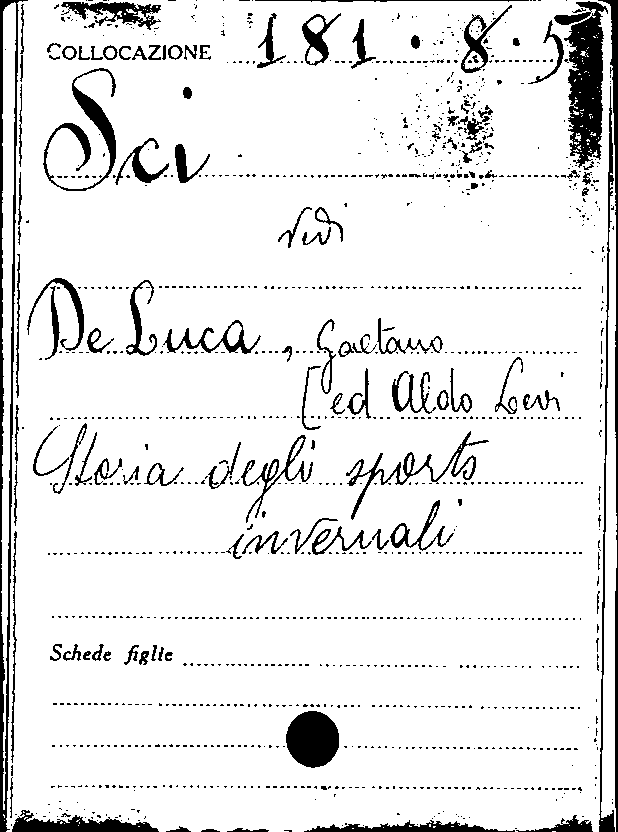 COLLOCAZIONE 181.8.5
Sci
vedi
De Luca, Gaetano
[ed Aldo Levi
Storia degli sports
invernali
Schede figlie